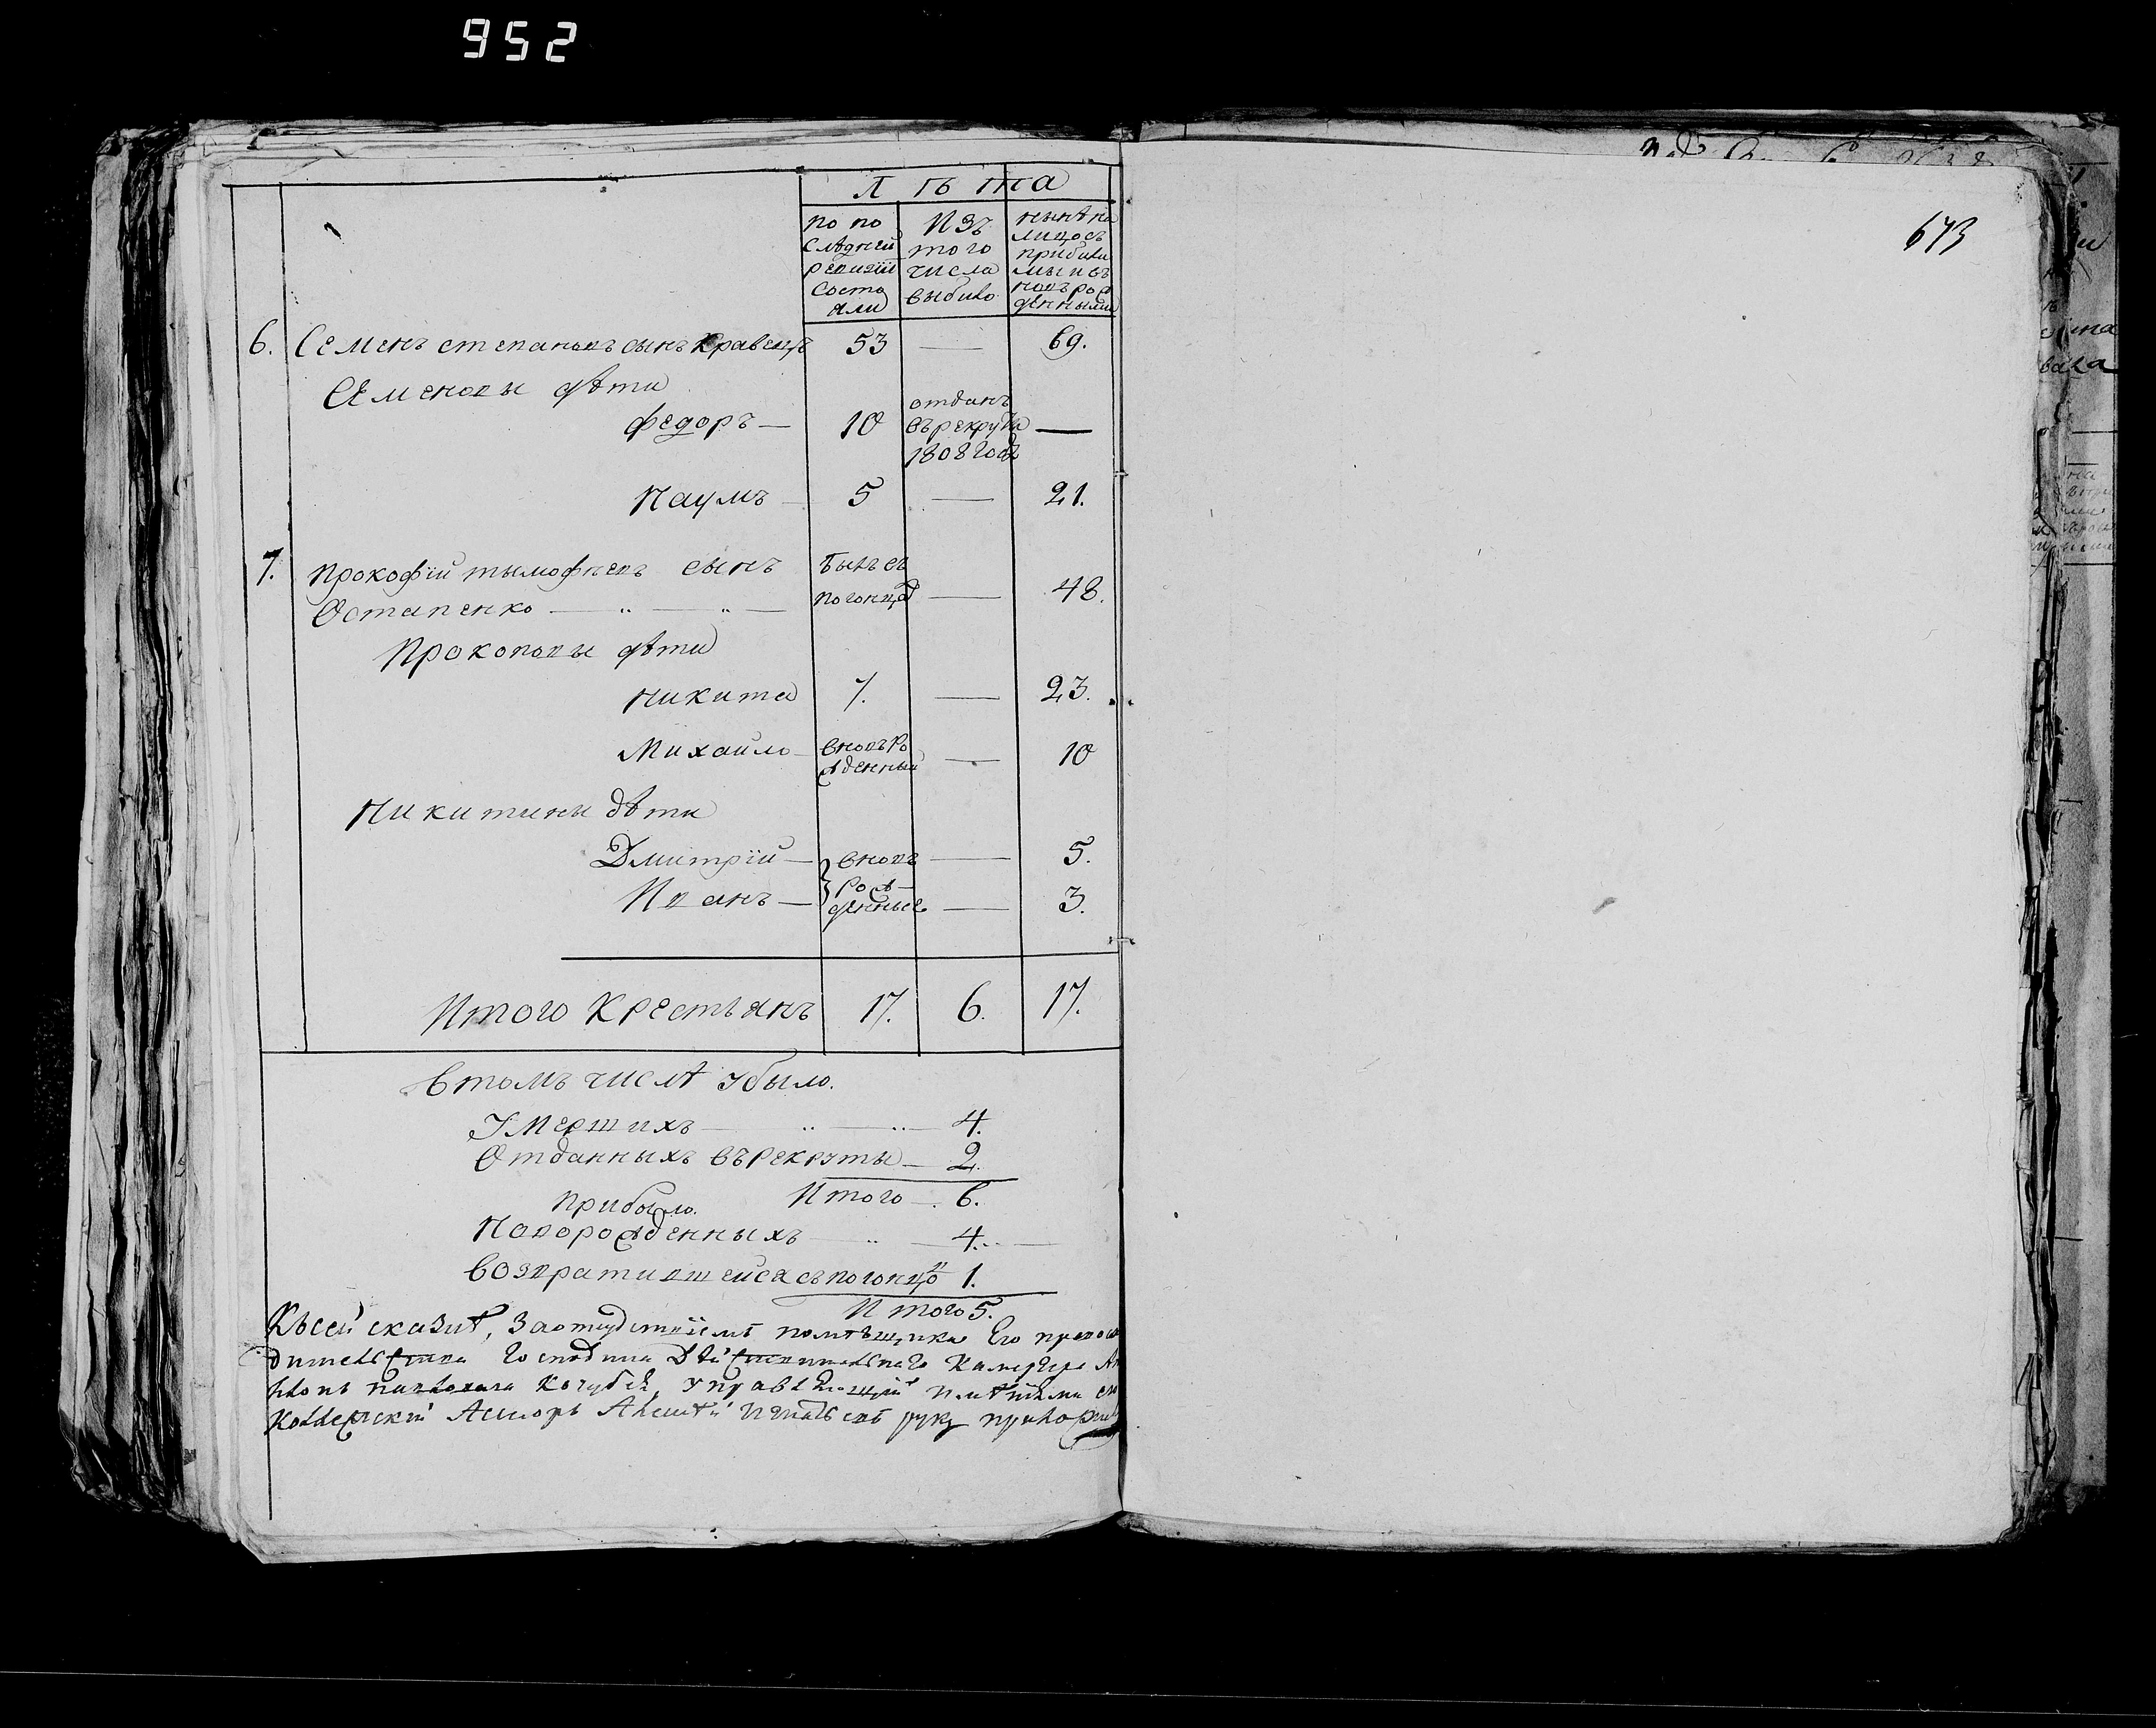 952
673
Лѣта
по по
слѣдней
ревизіи
состо
яли
Изъ
того
числа
выбыло
нынѣ на
лицо съ
прибылы
ми и съ
новърож
денными
6. Семенъ степановъ сынъ Кравецъ 53 — 69.
Семеновы дѣти
отданъ
федоръ — 10 въ рекруты —
1808 года
Наумъ — 5 — 21.
7. прокофій тымофѣевъ сынъ былъ въ
Остапенко — " — " — погонцаҳ — 48.
Прокоповы дѣти
никита 7. — 23.
Михайло — вновъ ро
жденный — 10
Никитины дѣти
Дмитрій — вновъ — 5.
Иванъ — рож-
денные — 3.
Итого Крестьянъ 17. 6. 17.
Втомъ числѣ убыло.
Умершихъ — " — " — 4.
Отданныхъ въ рекруты — 2.
Итого — 6.
прибыло.
Новорожденныхъ — " — 4.
Возвратившейся съ погонцо 1.
Итого 5.
Къ сей сказкѣ, За отсудствіемъ помѣщика Его превосхо
дительства Господина Дѣйствительнаго Камергера
Павловича Кочубея, управляющій имѣніями
Коллежскій Ассесоръ Алексѣй руку приложи